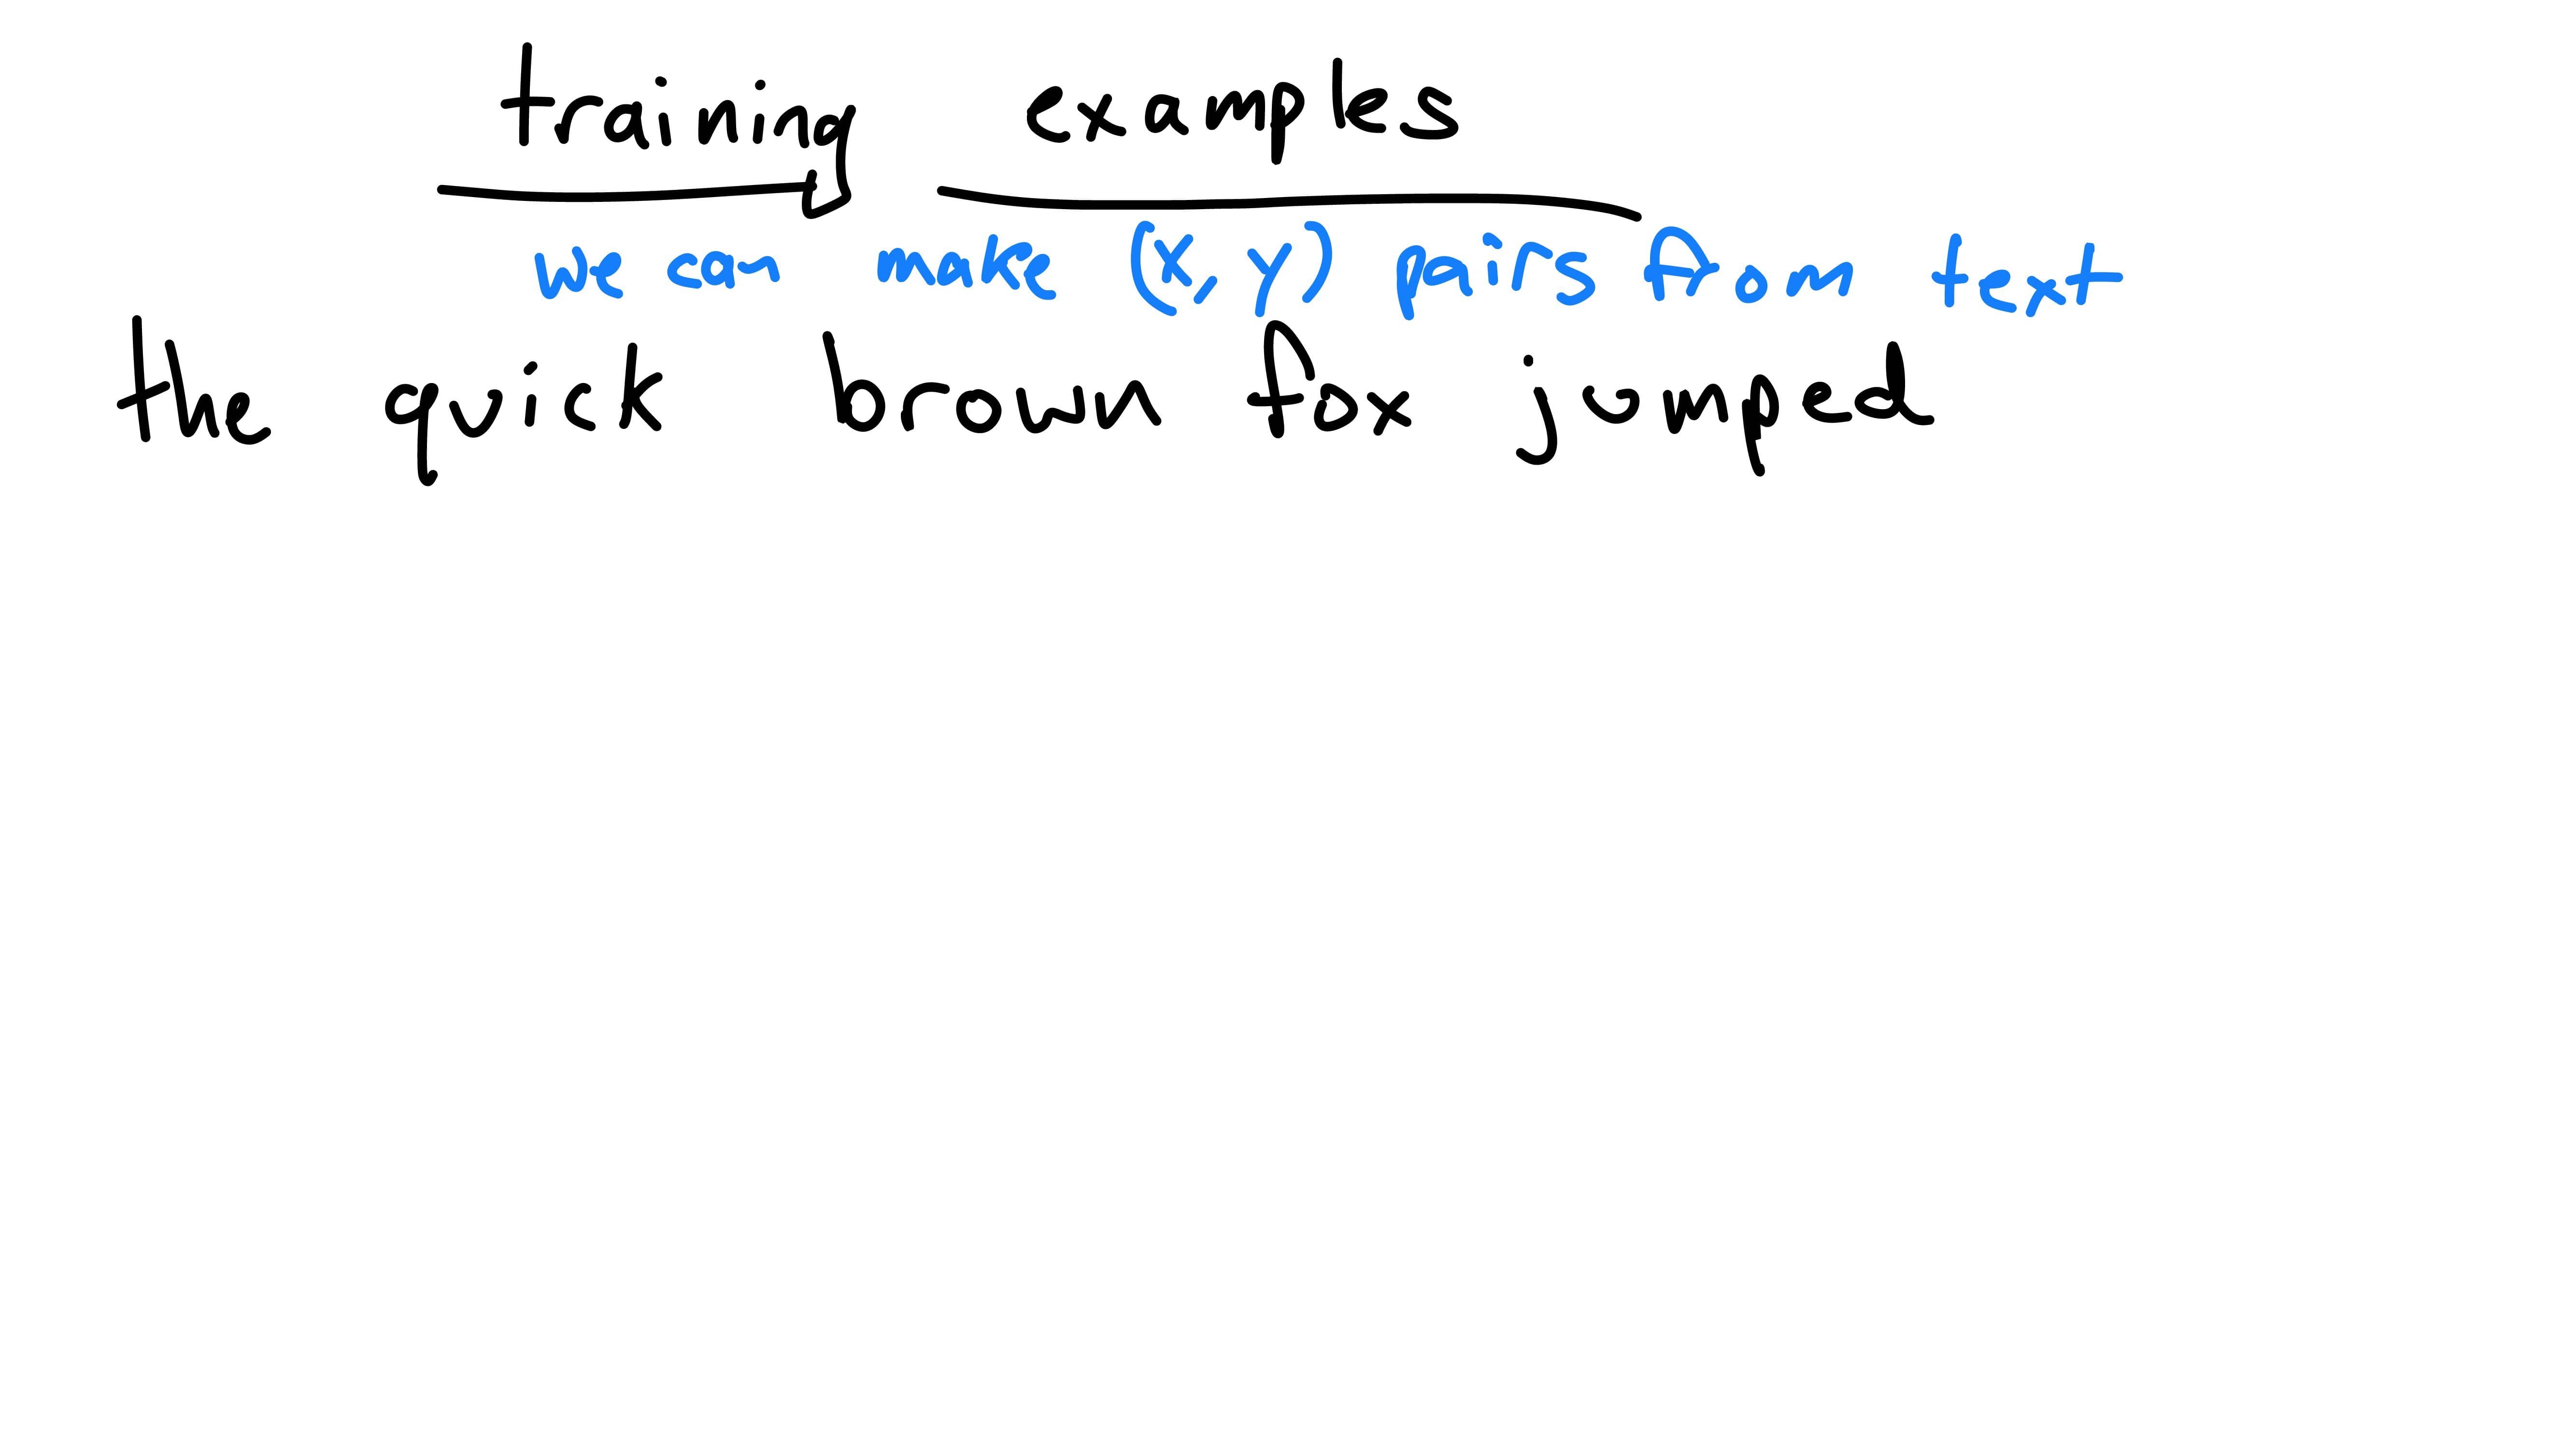 training examples
we can make (x, y) pairs from text
the quick brown fox jumped